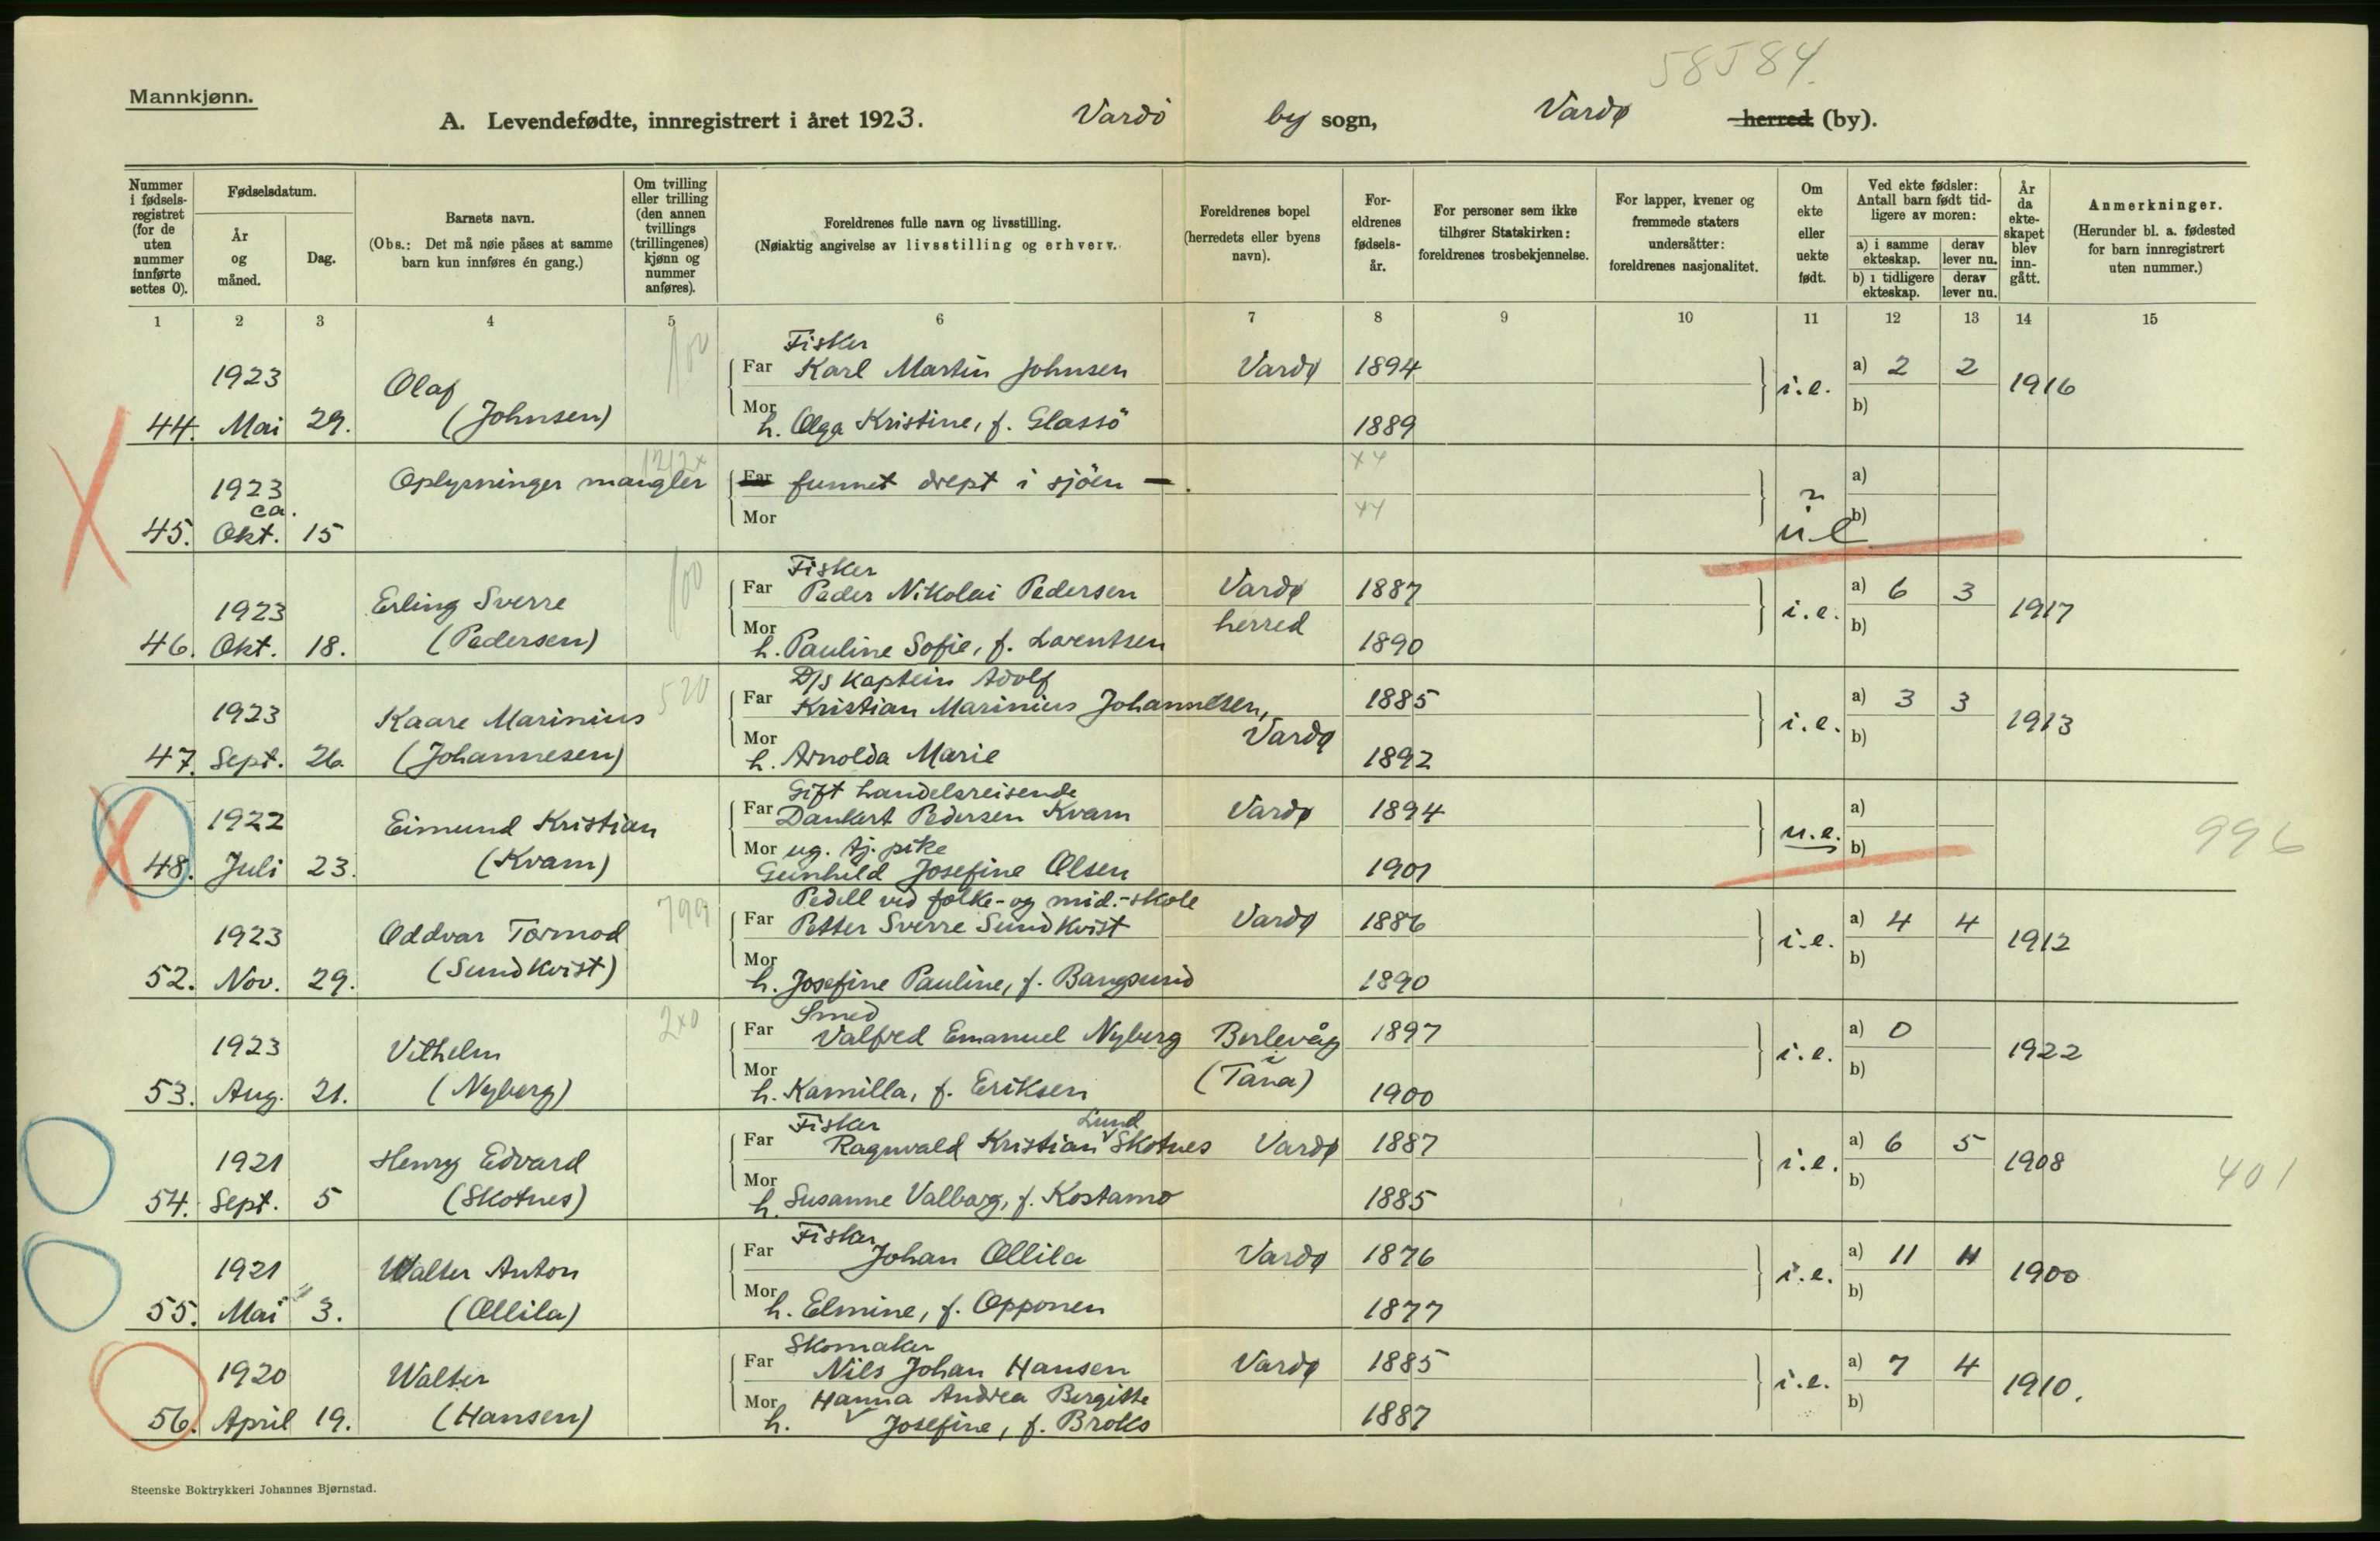 58584.
Mannkjønn.
A. Levendefødte, innregistrert i året 1923. Vardö by sogn, Vardø herred (by).
Nummer i fødsels-registret (for de uten nummer innførte settes 0).
Fødselsdatum.
År og måned.
Dag.
Barnets navn.
(Obs.: Det må nøie påses at samme barn kun innføres én gang.)
Om tvilling eller trilling (den annen tvillings (trillingenes) kjønn og nummer anføres).
Foreldrenes fulle navn og livsstilling.
(Nøiaktig angivelse av livsstilling og erhverv.
Foreldrenes bopel (herredets eller byens navn).
For-eldrenes fødsels-år.
For personer som ikke tilhører Statskirken: foreldrenes trosbekjennelse.
For lapper, kvener og fremmede staters undersåtter: foreldrenes nasjonalitet.
Om ekte eller uekte født.
Ved ekte fødsler: Antall barn født tid-ligere av moren:
a) i samme ekteskap.
derav lever nu.
b) i tidligere ekteskap.
derav lever nu.
År da ekte-skapet blev inn-gått.
Anmerkninger.
(Herunder bl. a. fødested for barn innregistrert uten nummer.)
1 2 3 4 5 6 7 8 9 10 11 12 13 14 15
Fisker
1923 Olaf 100 Far Karl Martin Johnsen Vardø 1894 i.e. a) 2 2 1916
44. Mai 29. (Johnsen) Mor h. Olga Kristine, f. Glassö 1889 b)
1923 Oplysninger mangler 1212x Far funnet drept i sjöen — xy a)
ca.
45. Okt. 15 Mor xy u.e b)
Fisker
1923 Erling Sverre 100 Far Peder Nikolai Pedersen Vardø 1887 i.e. a) 6 3 1917
46. Okt. 18. (Pedersen) Mor h. Pauline Sofie, f. Lorentsen herred 1890 b)
D/s kaptein Adolf
1923 Kaare Marinius 520 Far Kristian Marinius Johannesen, 1885 i.e. a) 3 3 1913
47. Sept. 26. (Johannesen) Mor h. Arnolda Marie Vardø 1892 b)
Gift handelsreisende
1922 Eimund Kristian Far Dankert Pedersen Kvam Vardø 1894 u.e. a) 996
48. Juli 23. (Kvam) Mor ug. tj. pike b)
Gunhild Josefine Olsen 1901
Pedell ved folke- og mid.-skole
1923 Oddvar Tormod 799 Far Petter Sverre Sundkvist Vardø 1886 i.e. a) 4 4 1912
52. Nov. 29. (Sundkvist) Mor h. Josefine Pauline, f. Bangsund 1890 b)
Smed
1923 Vilhelm 2x0 Far Valfred Emanuel Nyberg Berlevåg 1897 i.e. a) 0 1922
53. Aug. 21. (Nyberg) Mor h. Kamilla, f. Eriksen i (Tana) 1900 b)
Fisker Lund
1921 Henry Edvard Far Ragnvald Kristian Skotnes Vardø 1887 i.e. a) 6 5 1908 401
54. Sept. 5 (Skotnes) Mor h. Susanne Valborg, f. Kostamo 1885 b)
Fisker
1921 Walter Anton Far Johan Ollila Vardø 1876 i.e. a) 11 11 1900
55. Mai 3. (Ollila) Mor h. Elmine, f. Opponen 1877 b)
Skomaker
1920 Walter Far Nils Johan Hansen Vardø 1885 i.e. a) 7 4 1910.
56. April 19. (Hansen) Mor Hanna Andrea Bergitte b)
h. Josefine, f. Broks 1887
Steenske Boktrykkeri Johannes Bjørnstad.